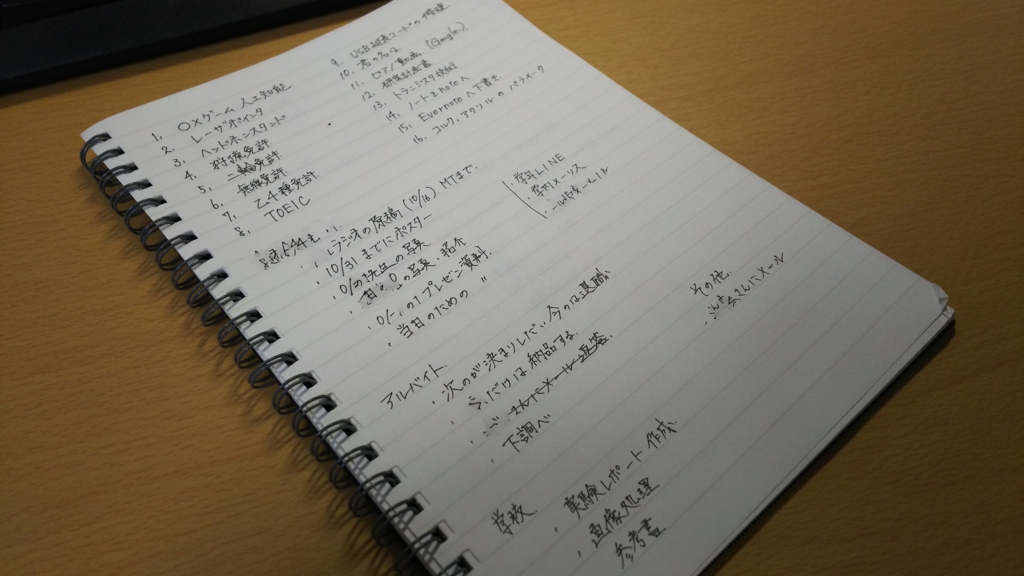 1. ○×ゲーム 人工知能
2. レーザポインタ
3. ヘッドホンスタンド
4. 狩猟免許
5. 二輪免許
6. 無線免許
7. 乙4種免許
8. TOEIC
9. USB コードの修理
10. 君の名は
11. ピアノ動画 (Google)
12. 研究計画書
13. トランジスタ技術
14. ノートをnoteへ
15. Evernoteへ下書き
16. コレク、アクリルの
・ラジオの原稿 (10/16) MTまで.
・10/31までにポスター
の写真
の写真・紹介
のプレゼン資料
・当日のための 〃
・学科LINE
・学科メーリス
アルバイト
・次のが決まりしだい今のは退職
だけは納品する
さんにメール返答
・下調べ
その他.
さんにメール
学校.
・実験レポート作成
・画像処理
参考書